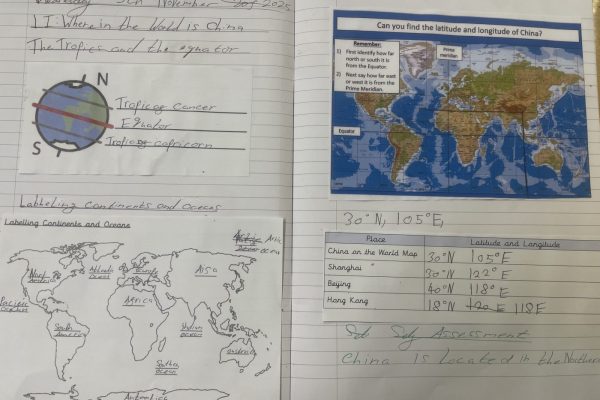 5th November 2025
LI: Where in the World is China
The Tropics and the equator
N
Tropic of cancer
Equator
Tropic of capricorn
S
Labheling continents and oceans
Labelling Continents and Oceans
Asia
Europe
North America
Atlantic Ocean
Africa
Pacific
South America
Indian Ocean
Southern Ocean
Can you find the latitude and longitude of China?
Remember:
1) First identify how far north or south it is from the Equator.
2) Next say how far east or west it is from the Prime Meridian.
Prime meridian
Equator
30°N, 105°E,
Place Latitude and Longitude
China on the World Map 30°N 105°E
Shanghai 30°N 122°E
Beijing 40°N 118°E
Hong Kong 18°N 118E
Self Assessment
China is Located in the Northern